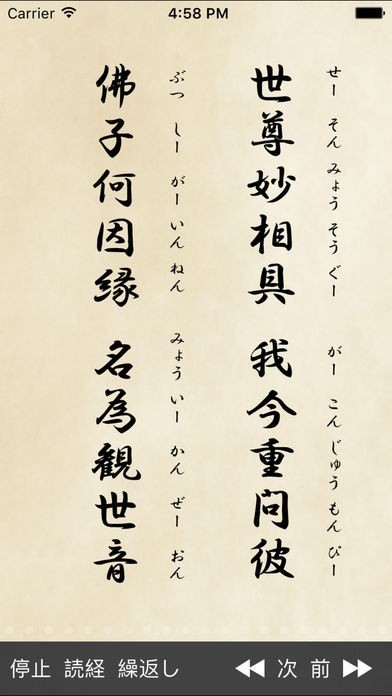 Carrier 4:58 PM
せー そん みょう そう ぐー がー こん じゅう もん ぴー
世尊妙相具 我今重問彼
ぶつ しー がー いん ねん みょう いー かん ぜー おん
佛子何因縁 名為觀世音
停止 読経 繰返し 次 前